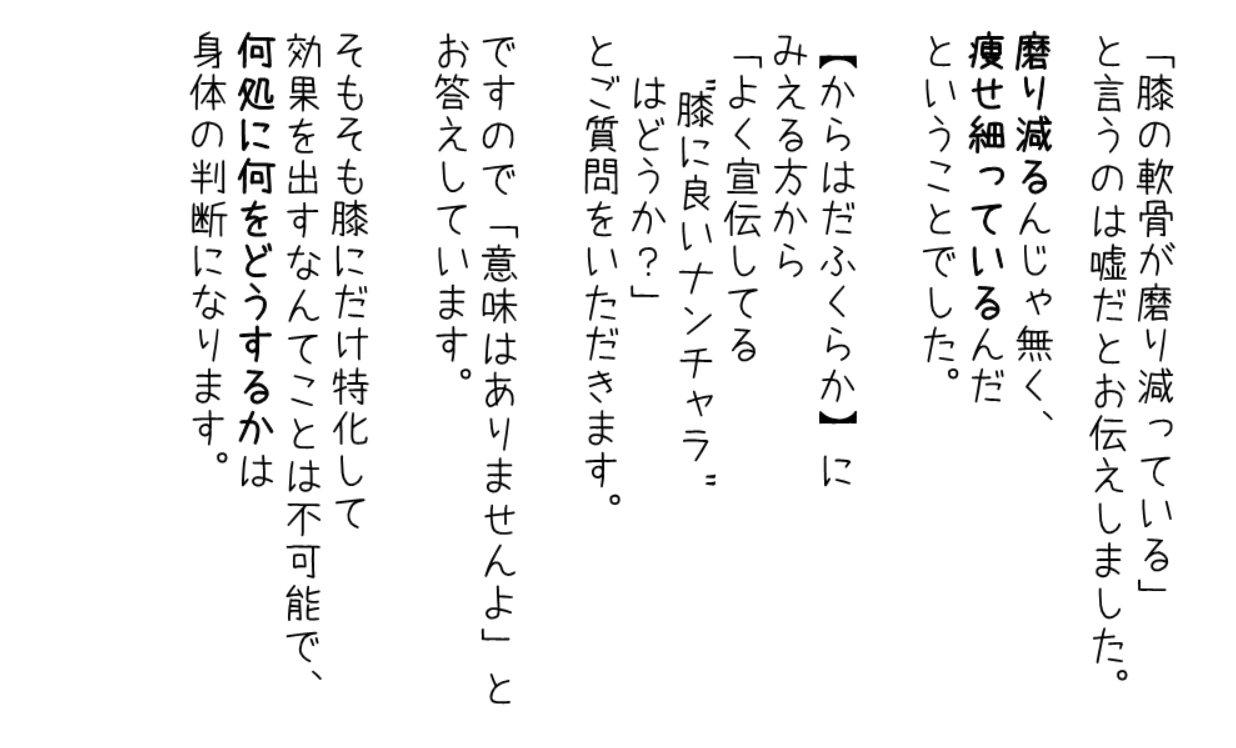 「膝の軟骨が磨り減っている」
と言うのは嘘だとお伝えしました。
磨り減るんじゃ無く、
痩せ細っているんだ
ということでした。
【からはだふくらか】に
みえる方から
「よく宣伝してる
〝膝に良いナンチャラ〟
はどうか?」
とご質問をいただきます。
ですので「意味はありませんよ」と
お答えしています。
そもそも膝にだけ特化して
効果を出すなんてことは不可能で、
何処に何をどうするかは
身体の判断になります。